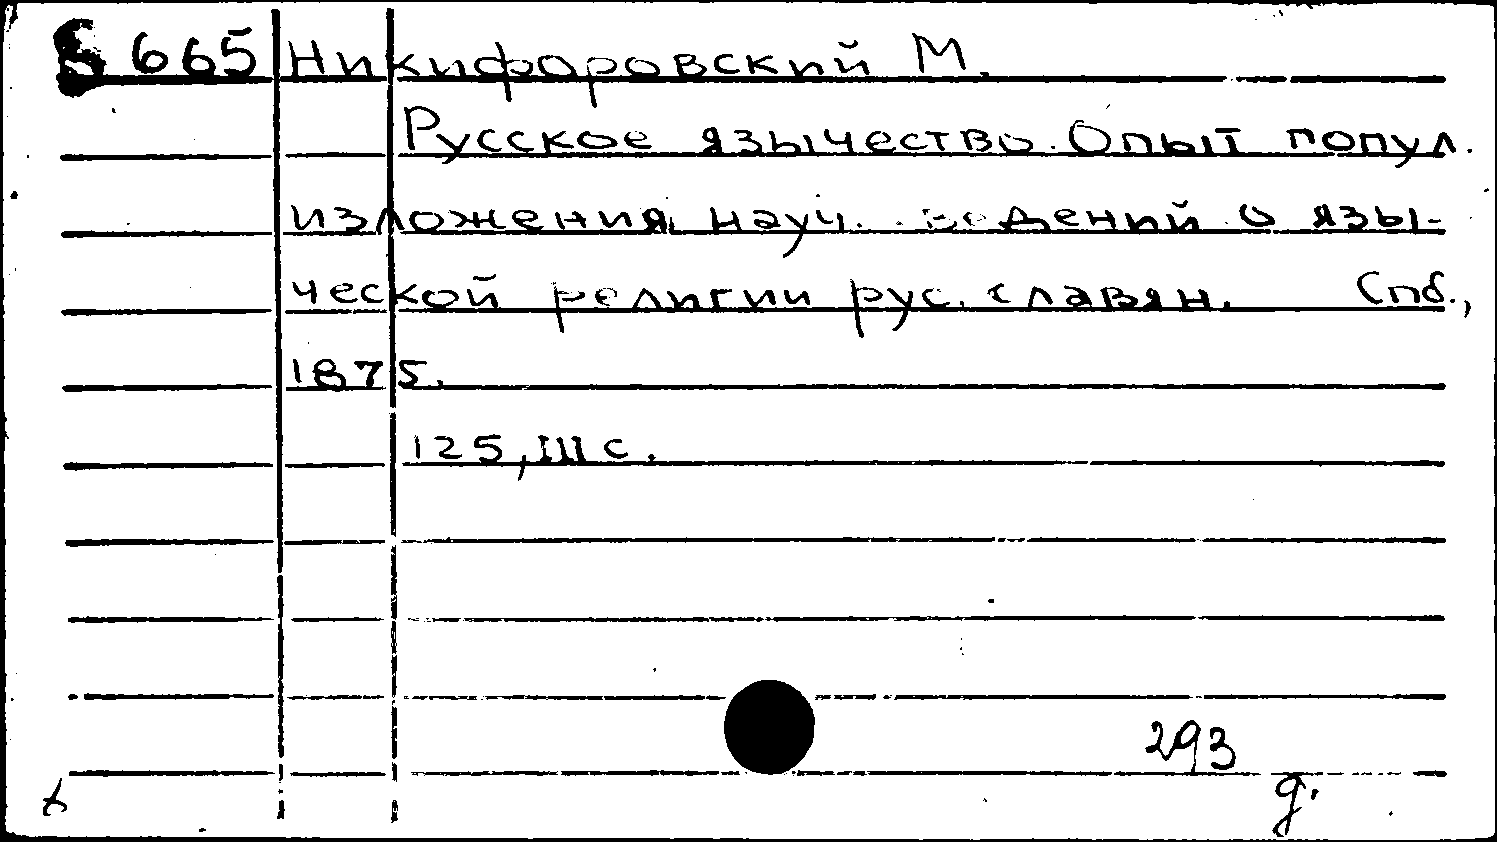 665 Никифоровский М.
Русское язычество. Опыт попул.
изложения науч. ведений о язы-
ческой религии рус. славян. Спб.,
1875.
125, III с.
293
д.